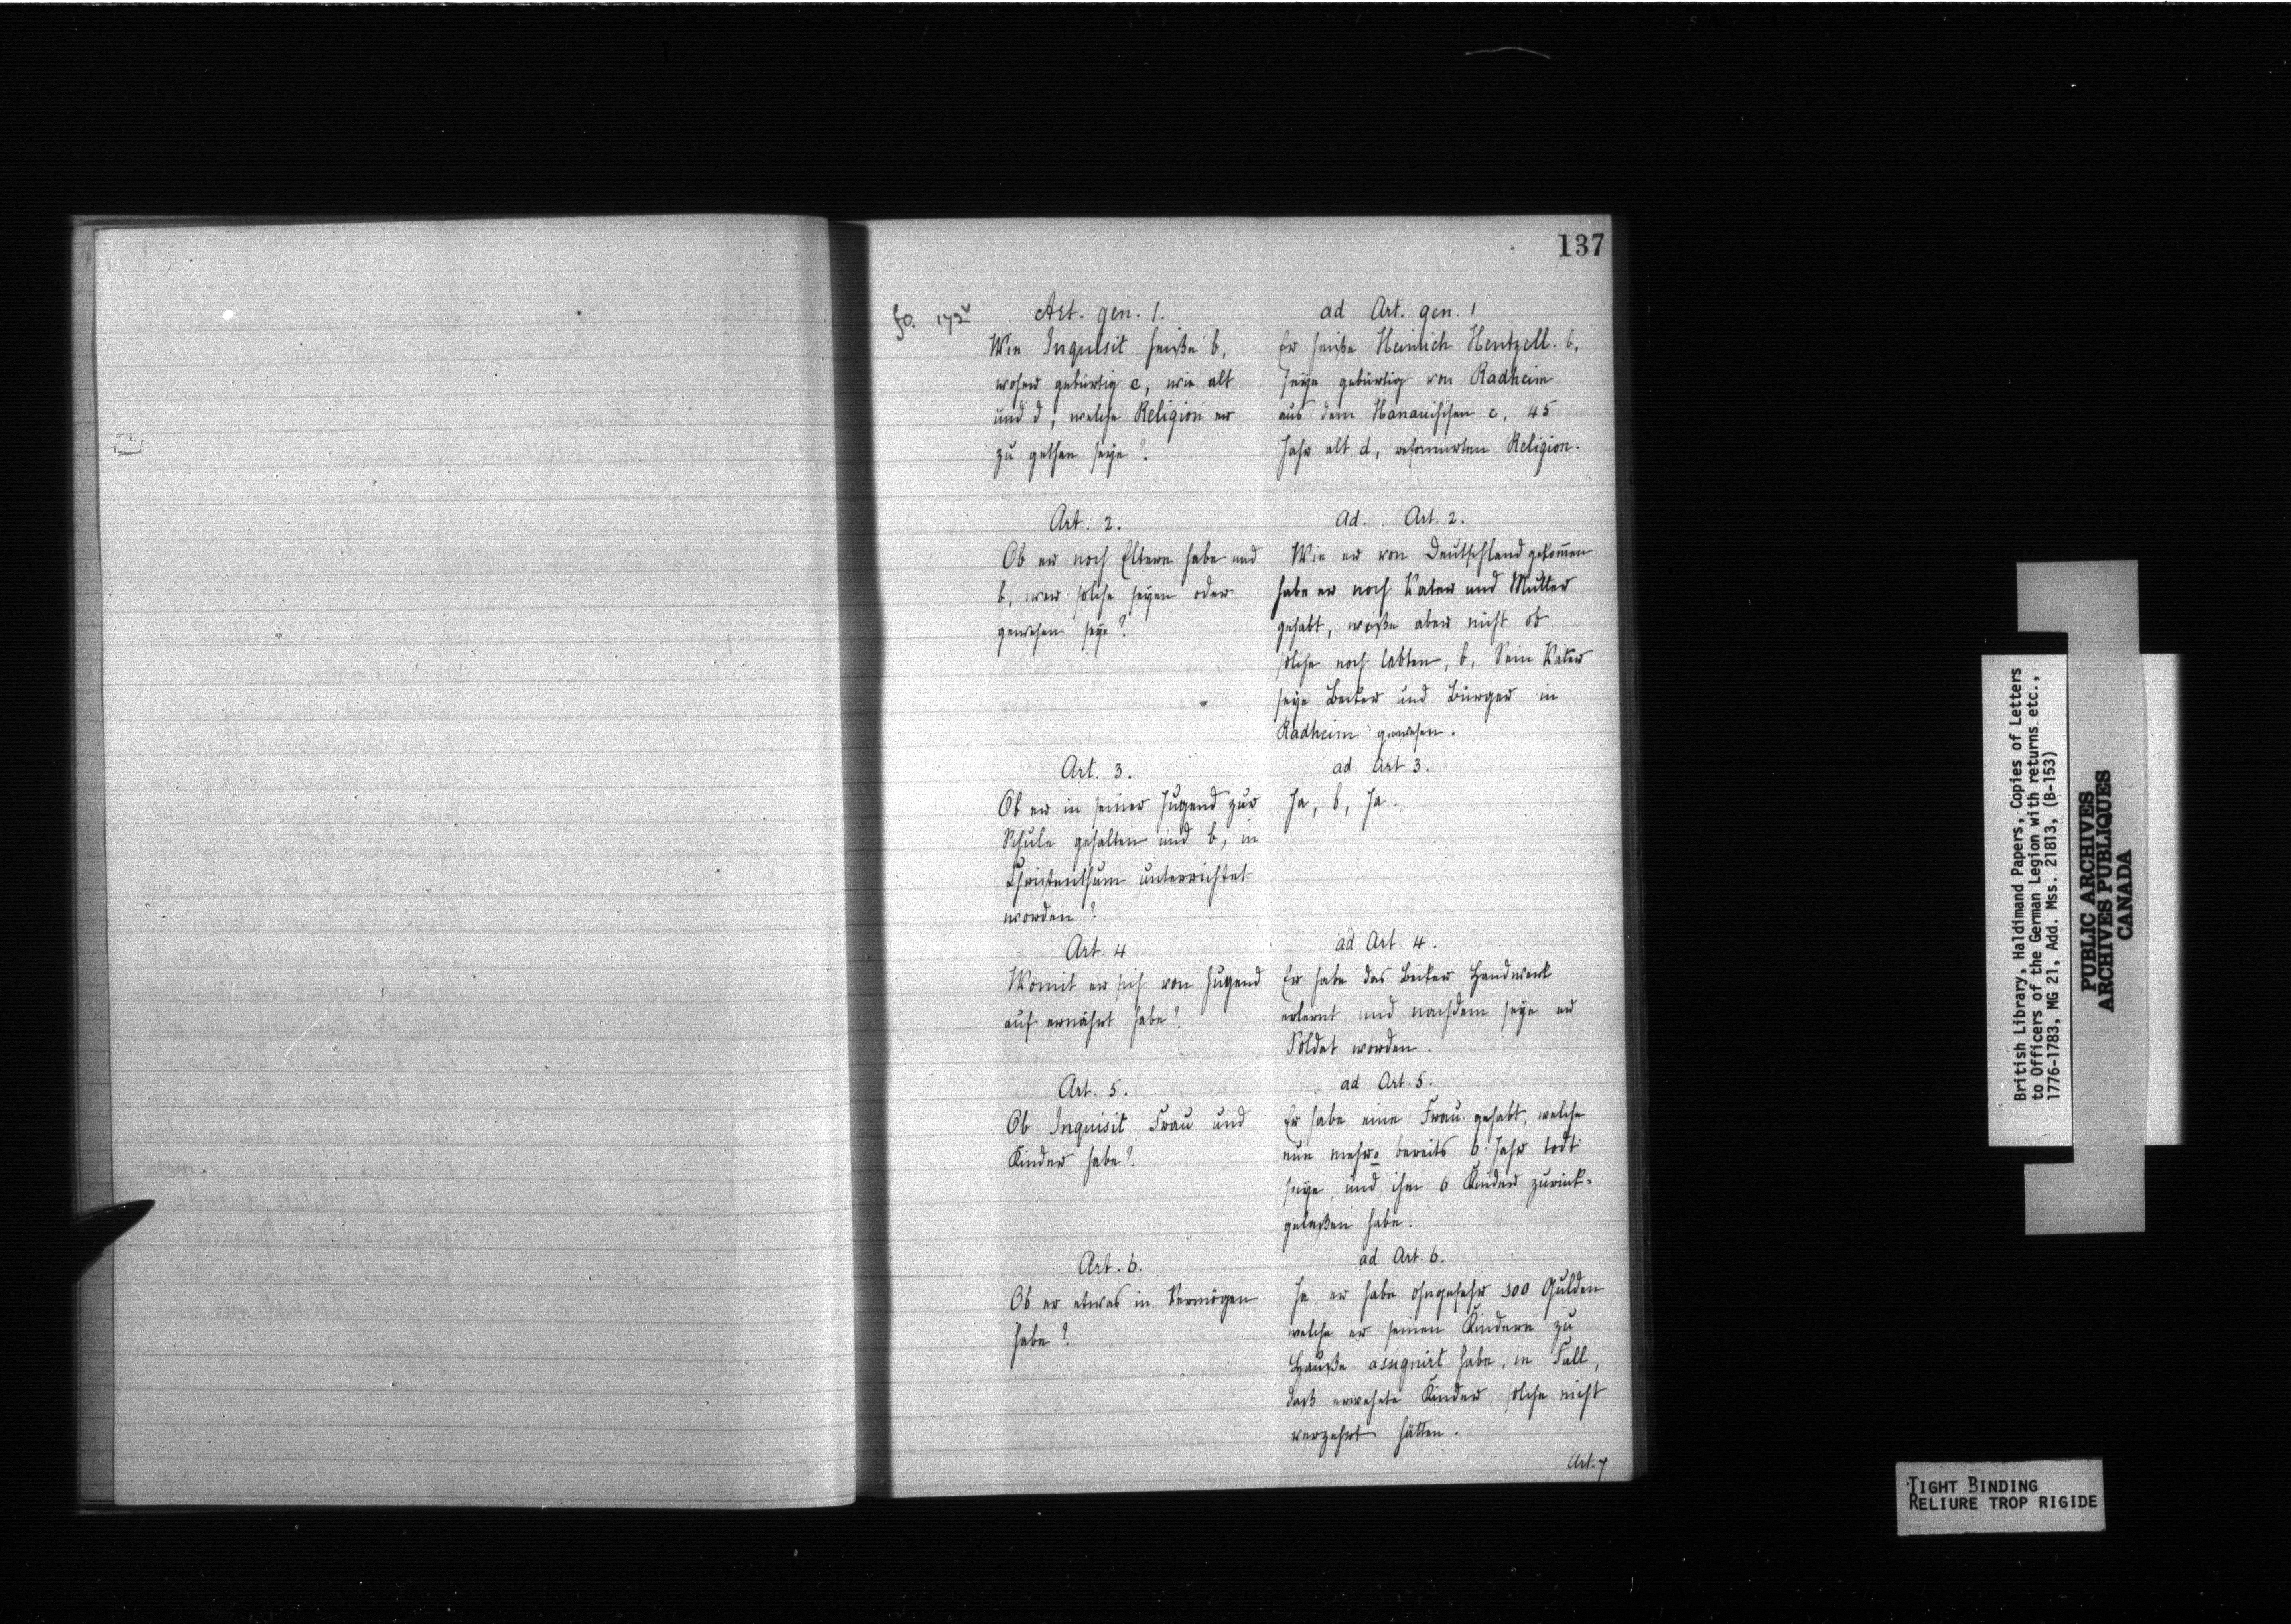 137
fo. 172v
Art. gen. 1.
Wie Inquisit heiße b,
woher gebürtig c, wie alt
und d, welche Religion er
zu gethan seye?
ad Art. gen. 1
Er heiße Heinrich Hentzell. b,
seye gebürtig von Radheim
aus dem Hanauischen c, 45
Jahr alt d, reformirten Religion.
Art. 2.
Ob er noch Eltern habe und
b, wer solche seyen oder
gewesen seye?
Ad. Art. 2.
Wie er von Deutschland gekom̄en
habe er noch Vater und Mutter
gehabt, wiße aber nicht ob
solche noch lebten, b, Sein Vater
seye Becker und Bürger in
Radheim gewesen.
Art. 3.
Ob er in seiner Jugend zur
Schule gehalten und b, in
Christenthum unterrichtet
worden?
ad Art 3.
Ja, b, Ja.
Art. 4
Womit er sich von Jugend
auf ernährt habe?
ad Art. 4.
Er habe das Becker Handwerk
erlernt und nachdem seye er
Soldat worden.
Art. 5.
Ob Inquisit Frau und
Kinder habe?
ad Art. 5.
Er habe eine Frau gehabt, welche
nun mehro bereits 6 Jahr todt
seye, und ihm 6 Kinder zurück-
gelaßen habe.
Art. 6.
Ob er etwas in Vermögen
habe?
ad Art. 6.
Ja, er habe ohngefehr 300 Gulden
welche er seinen Kindern zu
Hauße assignirt habe, in Fall,
daß erwehnte Kinder, solche nicht
verzehrt hätten.
Art. 7
British Library, Haldimand Papers, Copies of Letters
to Officers of the German Legion with returns etc.,
1776-1783, MG 21, Add. Mss. 21813, (B-153)
PUBLIC ARCHIVES
ARCHIVES PUBLIQUES
CANADA
TIGHT BINDING
RELIURE TROP RIGIDE